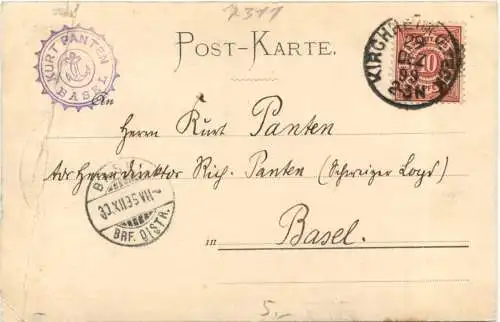 7311
KURT PANTEN
BASEL
POST-KARTE.
KIRCHHEIM
10
An
Herrn Kurt Panten
Herrn Direktor Rich. Panten (Schweizer Loyd)
BRF. DISTR.
in Basel.
5.-